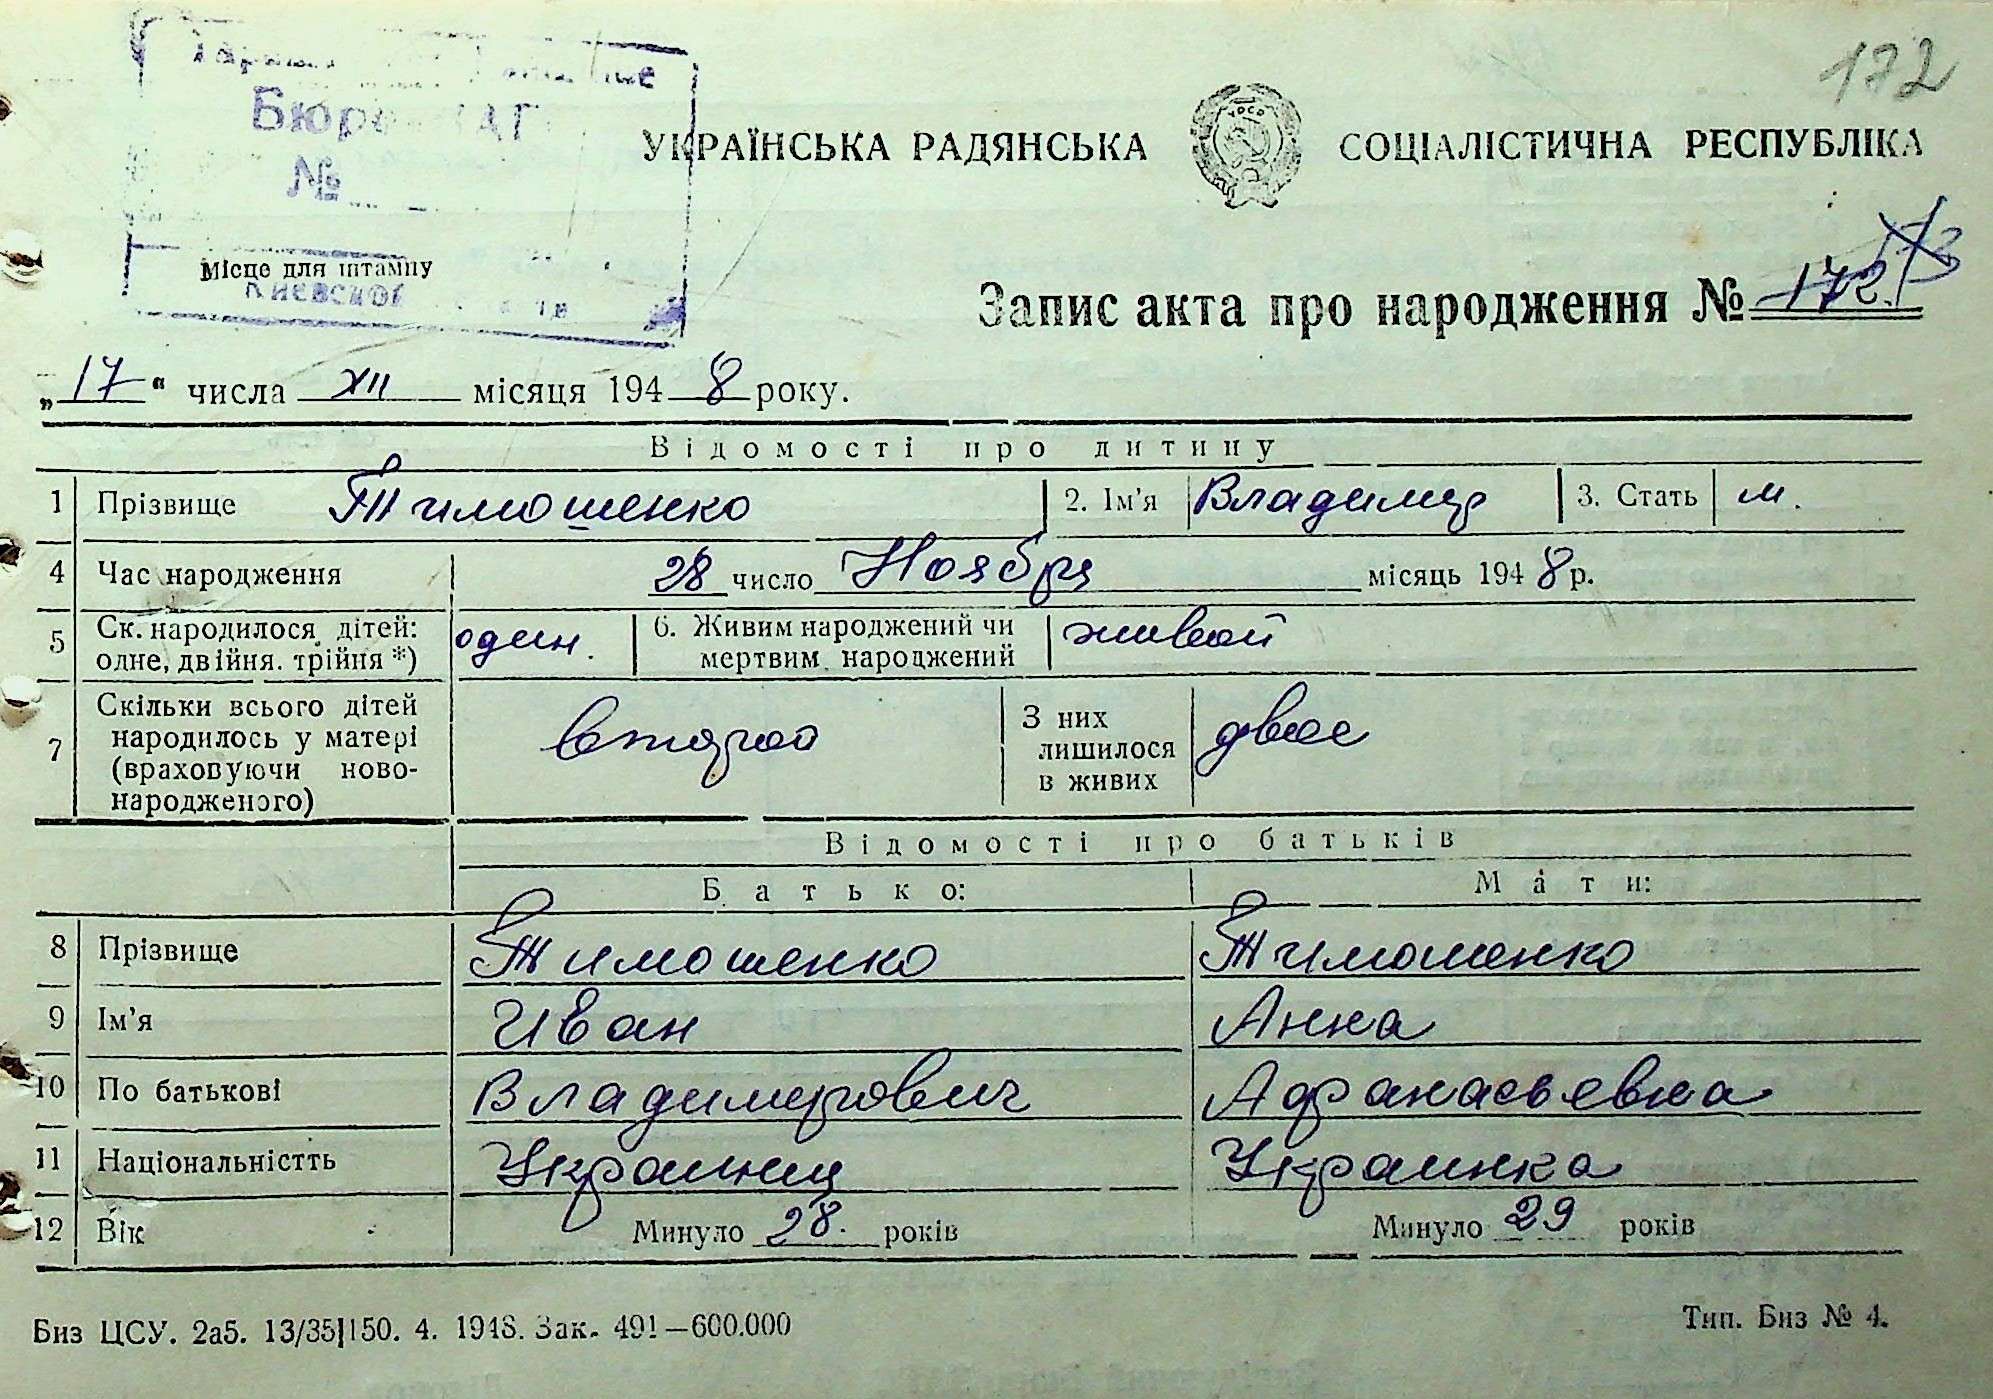 172
Бюро
№
Місце для штампу
Киевской
УКРАЇНСЬКА РАДЯНСЬКА СОЦІАЛІСТИЧНА РЕСПУБЛІКА
УРСР
Запис акта про народження № 172
„17“ числа XII місяця 1948 року.
Відомості про дитину
1 Прізвище Тимошенко 2. Ім'я Владимир 3. Стать м.
4 Час народження 28 число Ноября місяць 1948 р.
5 Ск. народилося дітей: один. 6. Живим народжений чи живой
одне, двійня. трійня *) мертвим народжений
7 Скільки всього дітей
народилось у матері
(враховуючи ново-
народженого)
второй
З них
лишилося
в живих
двое
Відомості про батьків
Батько: Мати:
8 Прізвище Тимошенко Тимошенко
9 Ім'я Иван Анна
10 По батькові Владимирович Афанасьевна
11 Національністть Украинец Украинка
12 Вік Минуло 28. років Минуло 29 років
Биз ЦСУ. 2а5. 13/35|150. 4. 1948. Зак. 491—600.000 Тип. Биз № 4.